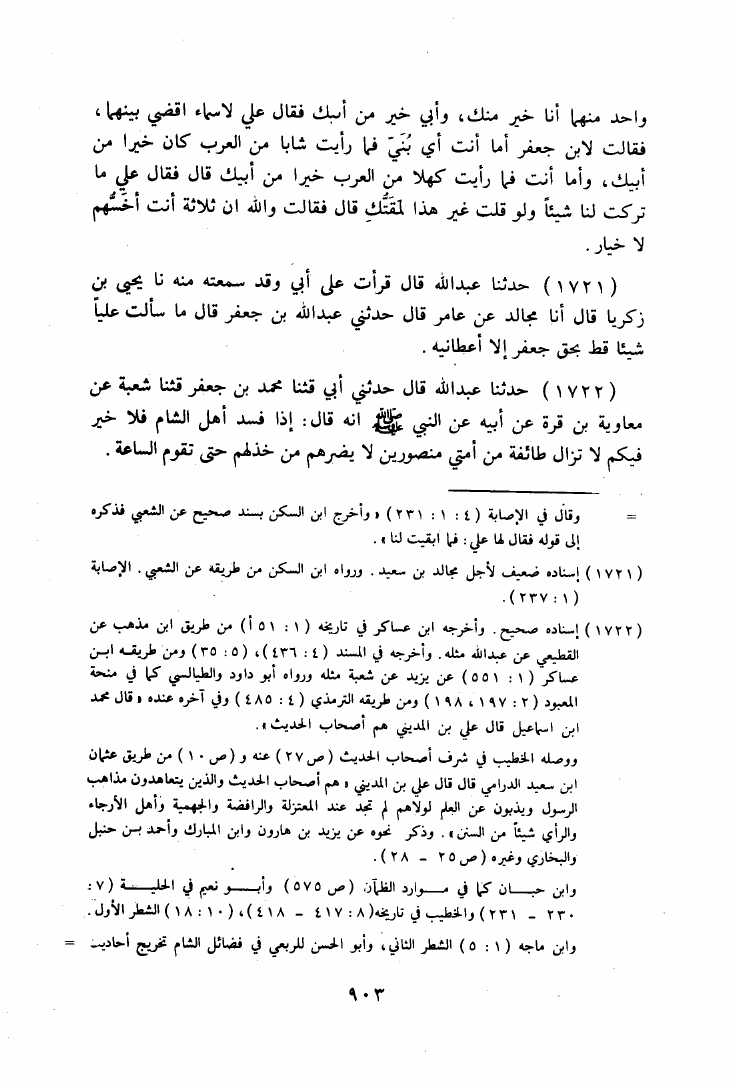 واحد منهما أنا خير منك، وأبي خير من أبيك فقال علي لاسماء اقضي بينهما،
فقالت لابن جعفر أما أنت أي بُنَيّ فما رأيت شابا من العرب كان خيرا من
أبيك، وأما أنت فما رأيت كهلا من العرب خيرا من أبيك قال فقال علي ما
تركت لنا شيئاً ولو قلت غير هذا لمَقَتُّكِ قال فقالت والله ان ثلاثة أنت أخَسُّهم
لا خيار.
(١٧٢١) حدثنا عبدالله قال قرأت على أبي وقد سمعته منه نا يحيى بن
زكريا قال أنا مجالد عن عامر قال حدثني عبدالله بن جعفر قال ما سألت علياً
شيئا قط بحق جعفر إلا أعطانيه.
(١٧٢٢) حدثنا عبدالله قال حدثني أبي قثنا محمد بن جعفر قثنا شعبة عن
معاوية بن قرة عن أبيه عن النبي ﷺ انه قال: إذا فسد أهل الشام فلا خير
فيكم لا تزال طائفة من أمتي منصورين لا يضرهم من خذلهم حتى تقوم الساعة.
= وقال في الإصابة (٤: ١: ٢٣١) «وأخرج ابن السكن بسند صحيح عن الشعبي فذكره
إلى قوله فقال لها علي: فما ابقيت لنا».
(١٧٢١) إسناده ضعيف لأجل مجالد بن سعيد. ورواه ابن السكن من طريقه عن الشعبي. الإصابة
(١: ٢٣٧).
(١٧٢٢) إسناده صحيح. وأخرجه ابن عساكر في تاريخه (١: ٥١ أ) من طريق ابن مذهب عن
القطيعي عن عبدالله مثله. وأخرجه في المسند (٤: ٤٣٦)، (٥: ٣٥) ومن طريقه ابن
عساكر (١: ٥٥١) عن يزيد عن شعبة مثله ورواه أبو داود والطيالسي كما في منحة
المعبود (٢: ١٩٧، ١٩٨) ومن طريقه الترمذي (٤: ٤٨٥) وفي آخره عنده «قال محمد
ابن اسماعيل قال علي بن المديني هم أصحاب الحديث».
ووصله الخطيب في شرف أصحاب الحديث (ص ٢٧) عنه و (ص ١٠) من طريق عثمان
ابن سعيد الدرامي قال قال علي بن المديني «هم أصحاب الحديث والذين يتعاهدون مذاهب
الرسول ويذبون عن العلم لولاهم لم تجد عند المعتزلة والرافضة والجهمية وأهل الأرجاء
والرأي شيئاً من السنن». وذكر نحوه عن يزيد بن هارون وابن المبارك وأحمد بن حنبل
والبخاري وغيره (ص ٢٥ - ٢٨).
وابن حبان كما في موارد الظمآن (ص ٥٧٥) وأبو نعيم في الحلية (٧:
٢٣٠ - ٢٣١) والخطيب في تاريخه (٨: ٤١٧ - ٤١٨)، (١٠: ١٨) الشطر الأول.
وابن ماجه (١: ٥) الشطر الثاني، وأبو الحسن للربعي في فضائل الشام تخريج أحاديث =
٩٠٣